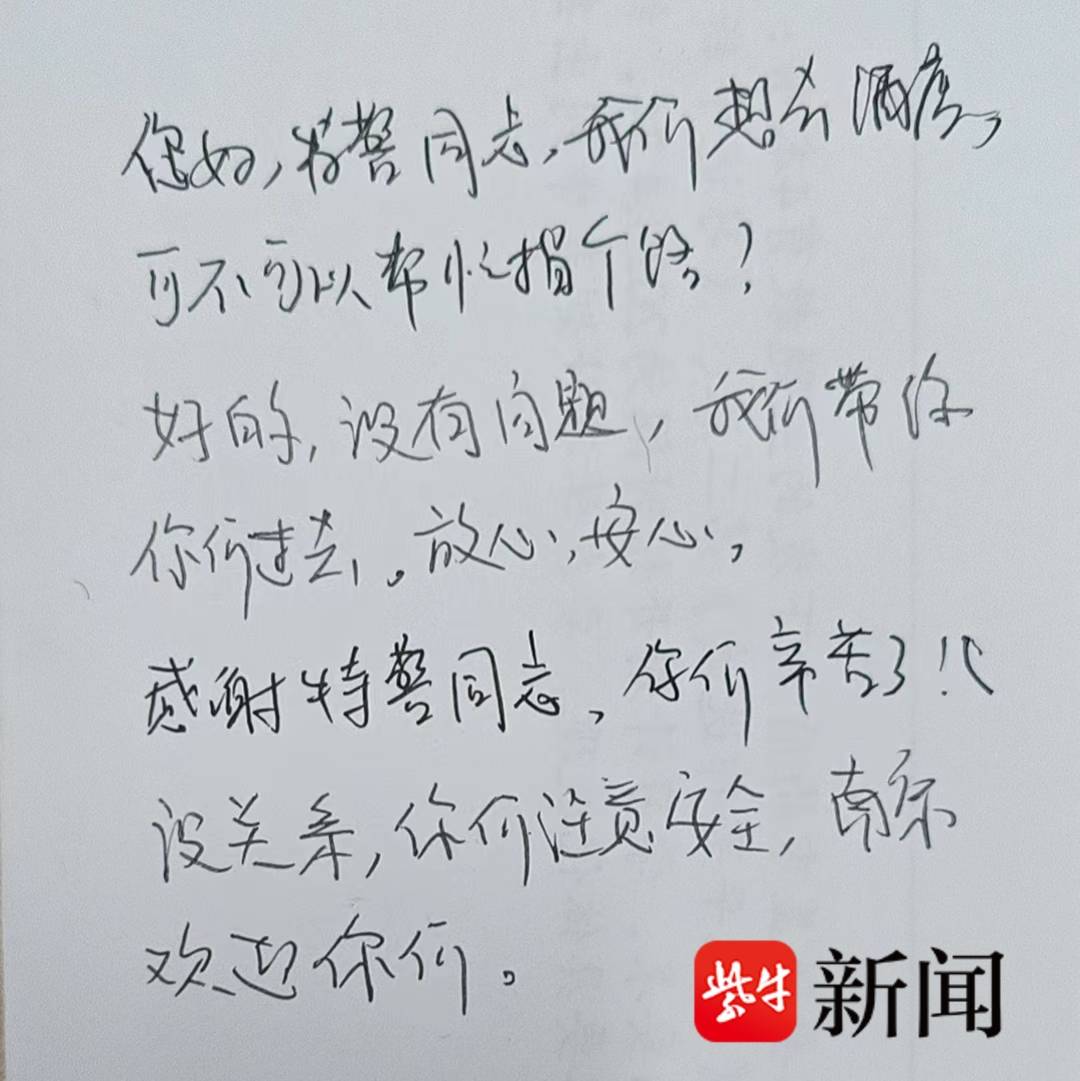 您好,特警同志,我们想去酒店,
可不可以帮忙指个路?
好的,没有问题,我们带你
你们过去。放心,安心,
感谢特警同志,你们辛苦了!
没关系,你们注意安全,南京
欢迎你们。
紫牛 新闻